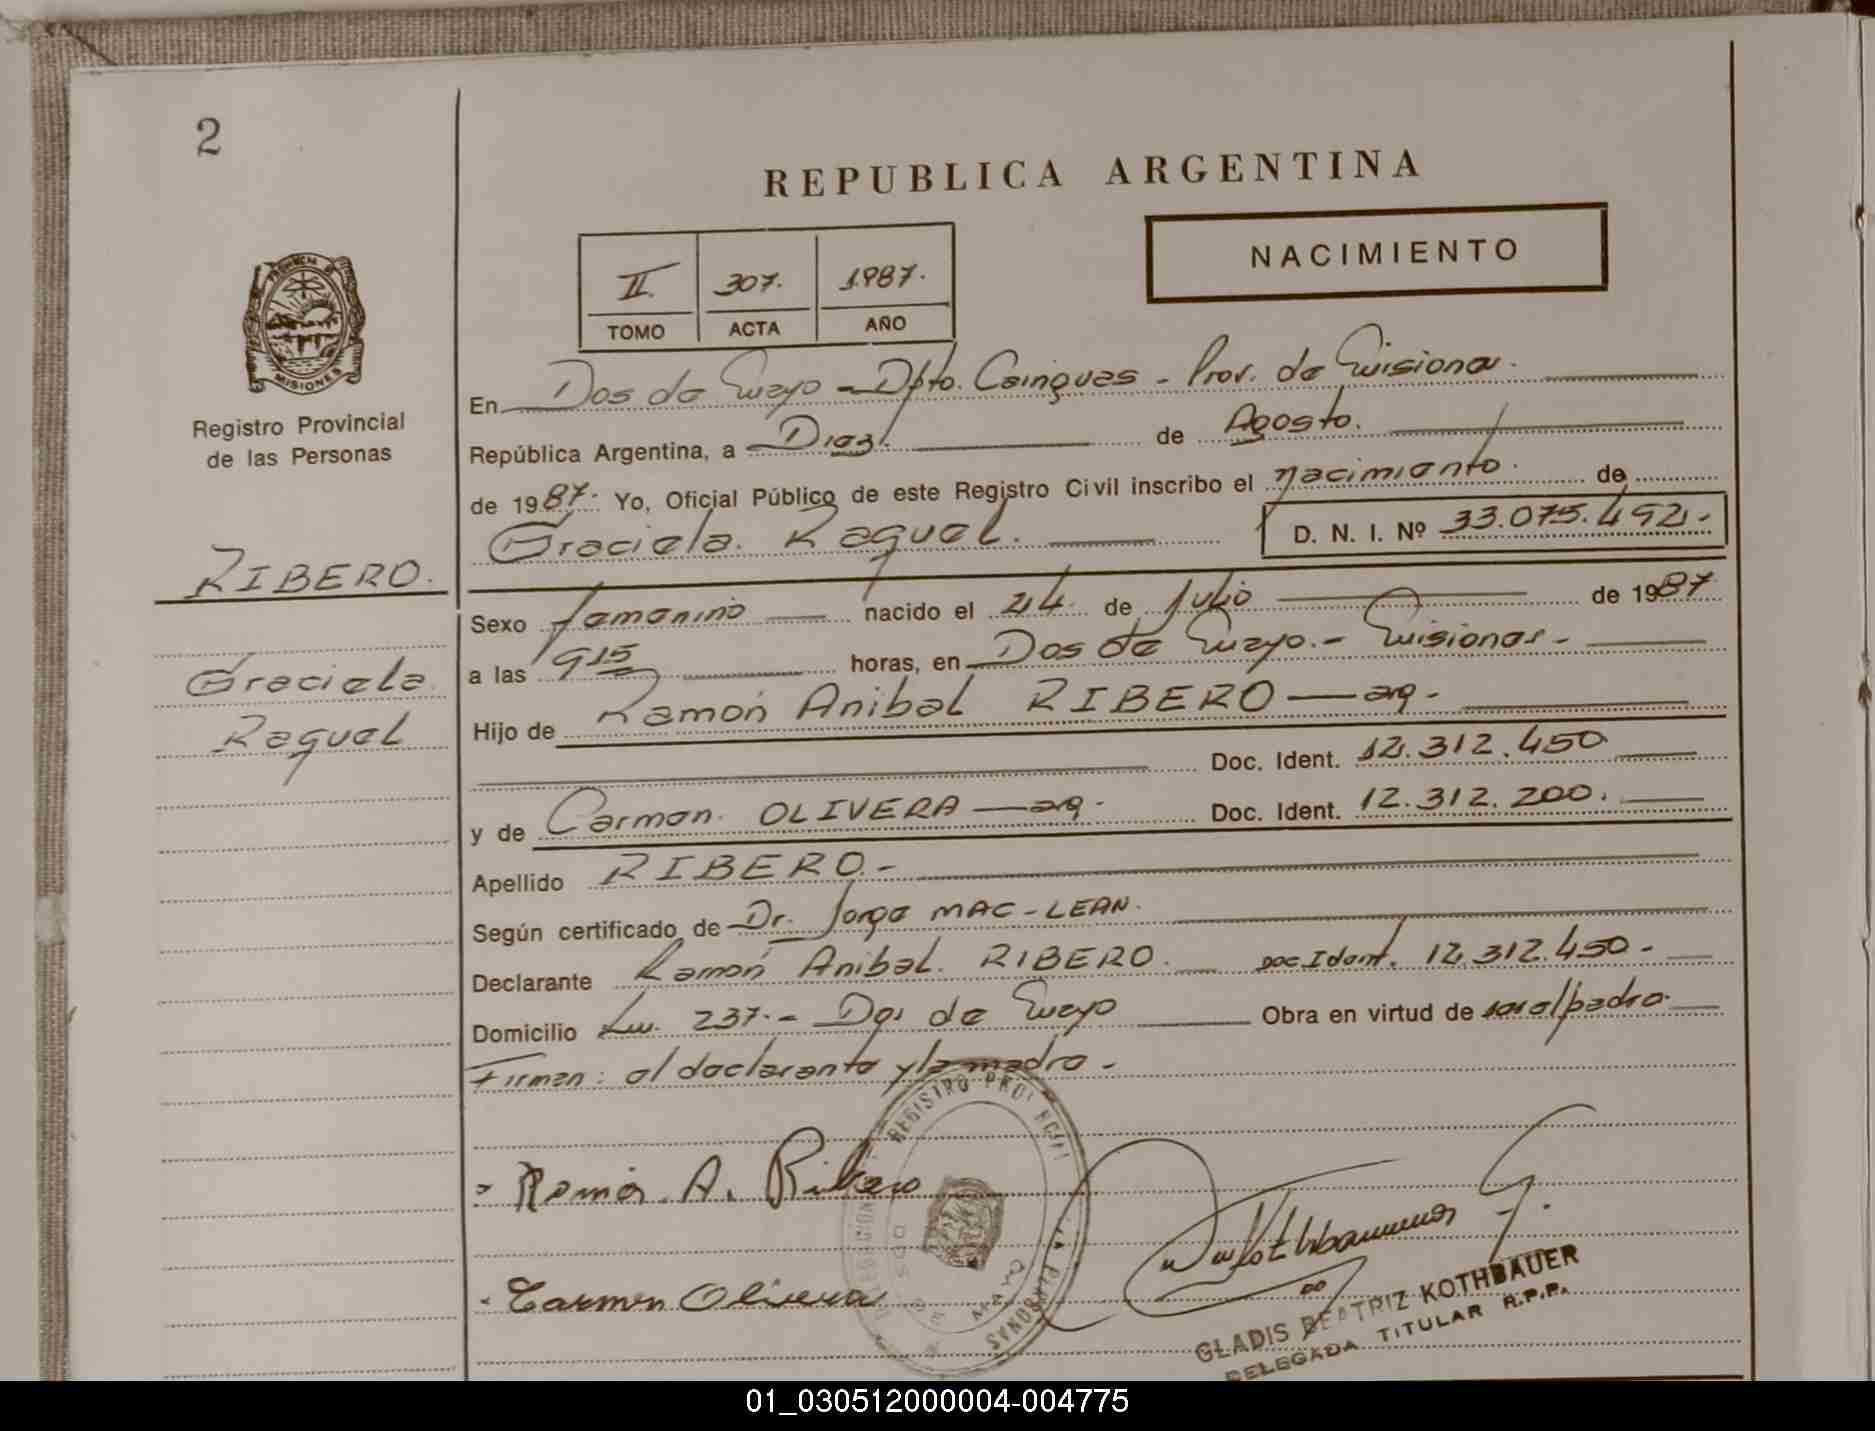 2
REPUBLICA ARGENTINA
NACIMIENTO
II. 307. 1987.
TOMO ACTA AÑO
PROVINCIA DE
MISIONES
Registro Provincial
de las Personas
RIBERO.
Graciela
Raquel
En Dos de Mayo - Dpto. Cainguas - Prov. de Misiones.
República Argentina, a Diez. de Agosto.
de 1987. Yo, Oficial Público de este Registro Civil inscribo el nacimiento. de
Graciela. Raquel. D. N. I. Nº 33.075.492.-
Sexo femenino nacido el 24. de Julio de 1987
a las 915 horas, en Dos de Mayo.- Misiones-
Hijo de Ramón Anibal RIBERO — ar.
Doc. Ident. 12.312.450
y de Carmen. OLIVERA — ar. Doc. Ident. 12.312.200.
Apellido RIBERO.-
Según certificado de Dr. Jorge MAC-LEAN.
Declarante Ramón Anibal. RIBERO. Doc Ident. 12.312.450-
Domicilio Lw. 237.- Dos de Mayo Obra en virtud de ser el padre.
Firman: el declarante y la madre-
Ramón A. Ribero
Carmen Olivera
GLADIS BEATRIZ KOTHBAUER
DELEGADA TITULAR R.P.P.
01_030512000004-004775